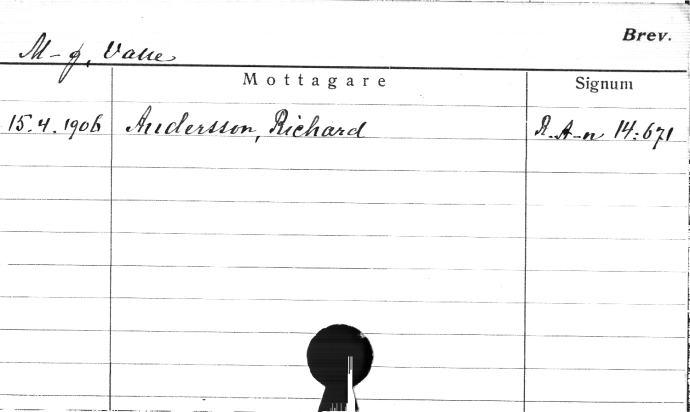 Brev.
M-g, Valle
Mottagare Signum
15.4.1906 Andersson, Richard R. A-n 14:671